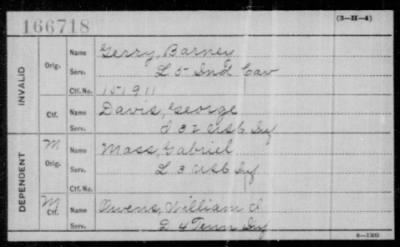 166718
(3-H-4)
INVALID
Orig.
Name Gerry, Barney
Serv. L 5 Ind Cav
Ctf. No. 151911
Ctf.
Name Davis, George
Serv. I 32 USC Inf
DEPENDENT
M
Orig.
Name Mass, Gabriel
Serv. L 3 USC Inf
M
Ctf.
Name Owens, William I
Serv. D 4 Tenn Inf